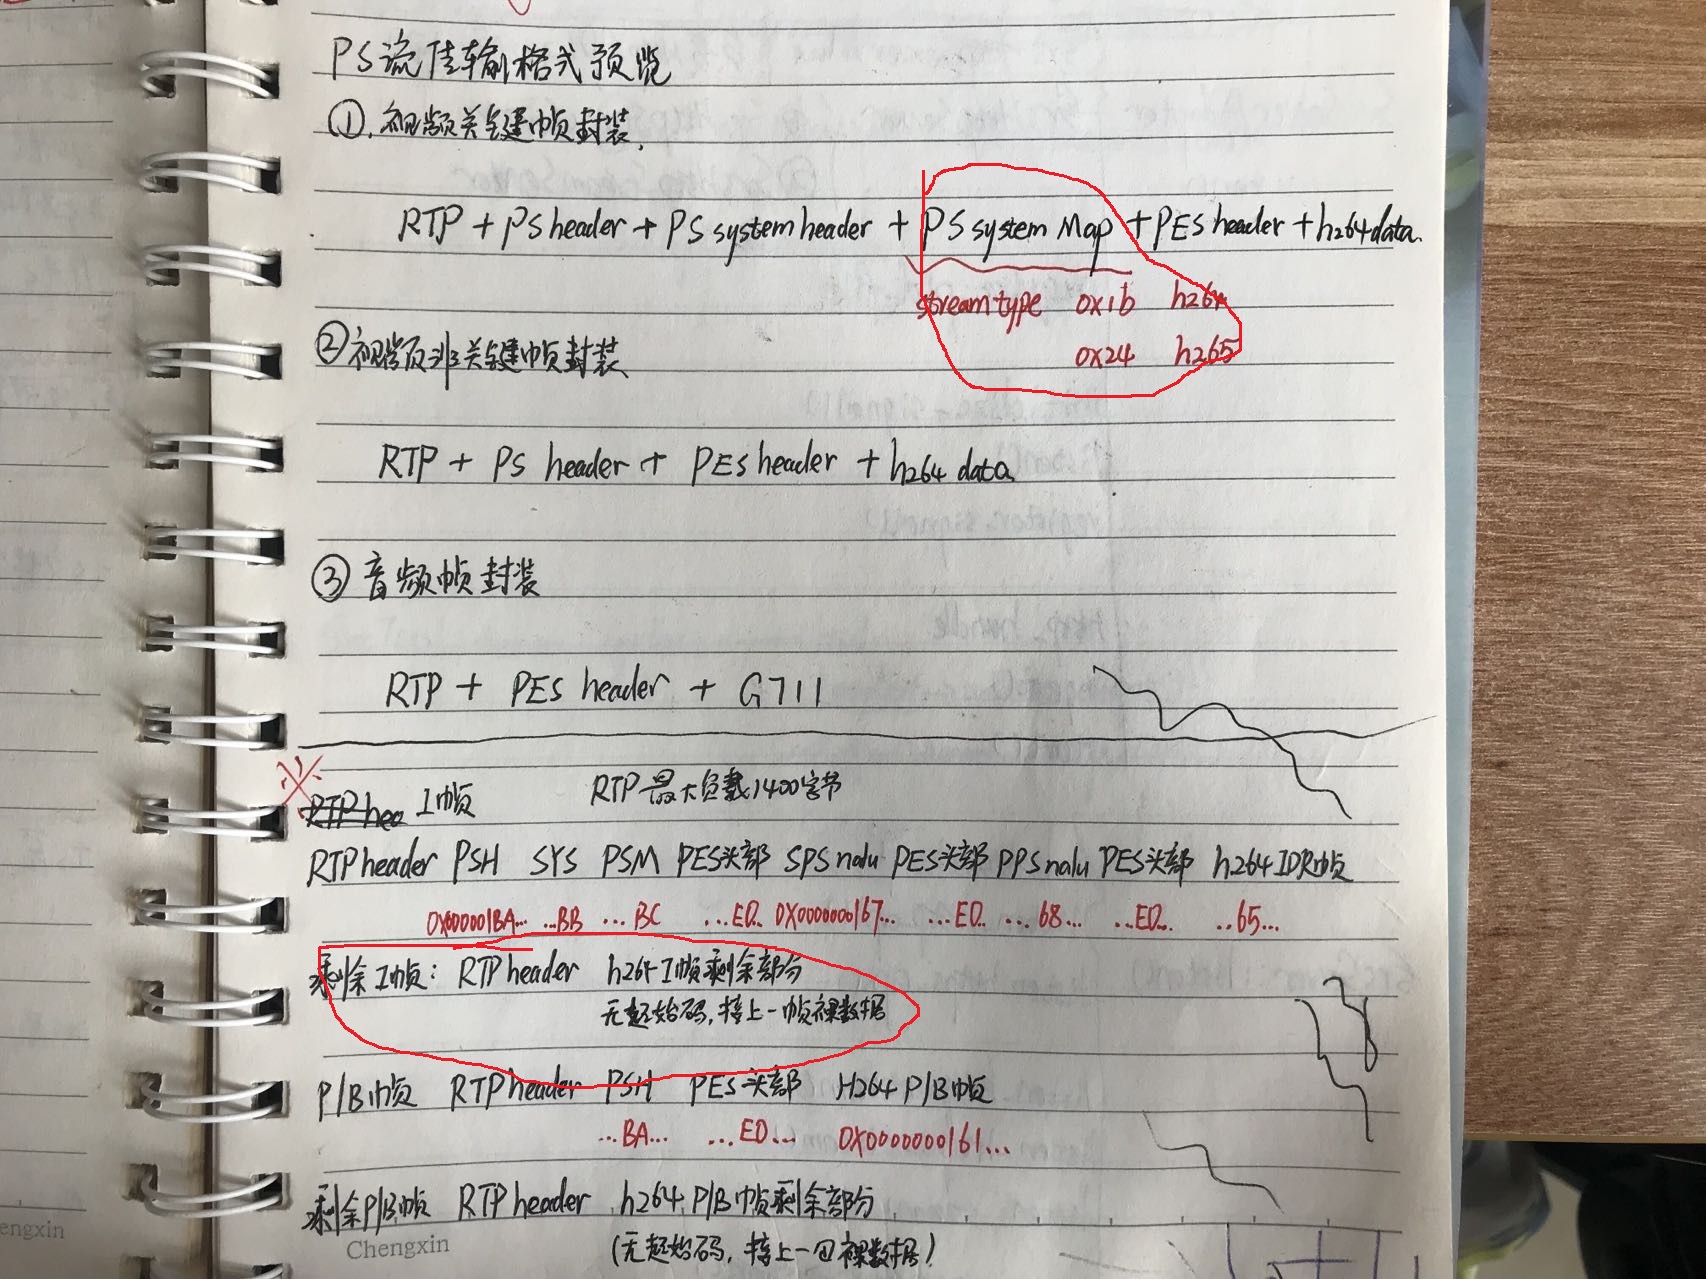 PS流传输格式预览
①.视频关键帧封装.
RTP + PS header + PS system header + PS system Map + PES header + h264 data.
stream type 0x1b h264
0x24 h265
②视频非关键帧封装
RTP + PS header + PES header + h264 data
③音频帧封装
RTP + PES header + G711
※
RTP hea I帧 RTP最大负载1400字节
RTP header PSH SYS PSM PES头部 SPS nalu PES头部 PPS nalu PES头部 h264 IDR帧
0X000001BA... ...BB ...BC ...E0.. 0X0000000167... ...E0.. ...68... ...E0... ..65...
剩余I帧: RTP header h264 I帧剩余部分
无起始码,接上一帧裸数据
P/B帧 RTP header PSH PES头部 H264 P/B帧
...BA... ...E0... 0X0000000161...
剩余P/B帧 RTP header h264 P/B帧剩余部分
(无起始码,接上一包裸数据)
Chengxin
engxin